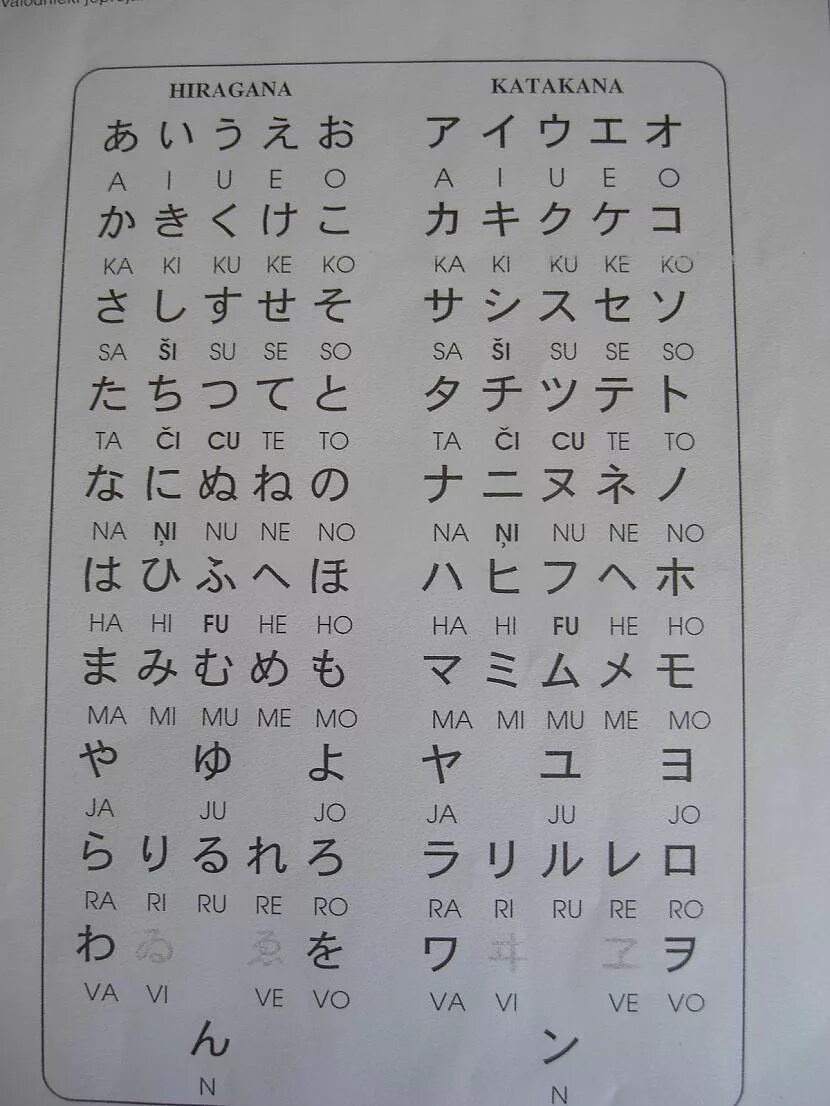 HIRAGANA KATAKANA
あ い う え お ア イ ウ エ オ
A I U E O A I U E O
か き く け こ カ キ ク ケ コ
KA KI KU KE KO KA KI KU KE KO
さ し す せ そ サ シ ス セ ソ
SA ŠI SU SE SO SA ŠI SU SE SO
た ち つ て と タ チ ツ テ ト
TA ČI CU TE TO TA ČI CU TE TO
な に ぬ ね の ナ ニ ヌ ネ ノ
NA ŅI NU NE NO NA ŅI NU NE NO
は ひ ふ へ ほ ハ ヒ フ ヘ ホ
HA HI FU HE HO HA HI FU HE HO
ま み む め も マ ミ ム メ モ
MA MI MU ME MO MA MI MU ME MO
や ゆ よ ヤ ユ ヨ
JA JU JO JA JU JO
ら り る れ ろ ラ リ ル レ ロ
RA RI RU RE RO RA RI RU RE RO
わ ゐ ゑ を ワ ヰ ヱ ヲ
VA VI VE VO VA VI VE VO
ん ン
N N